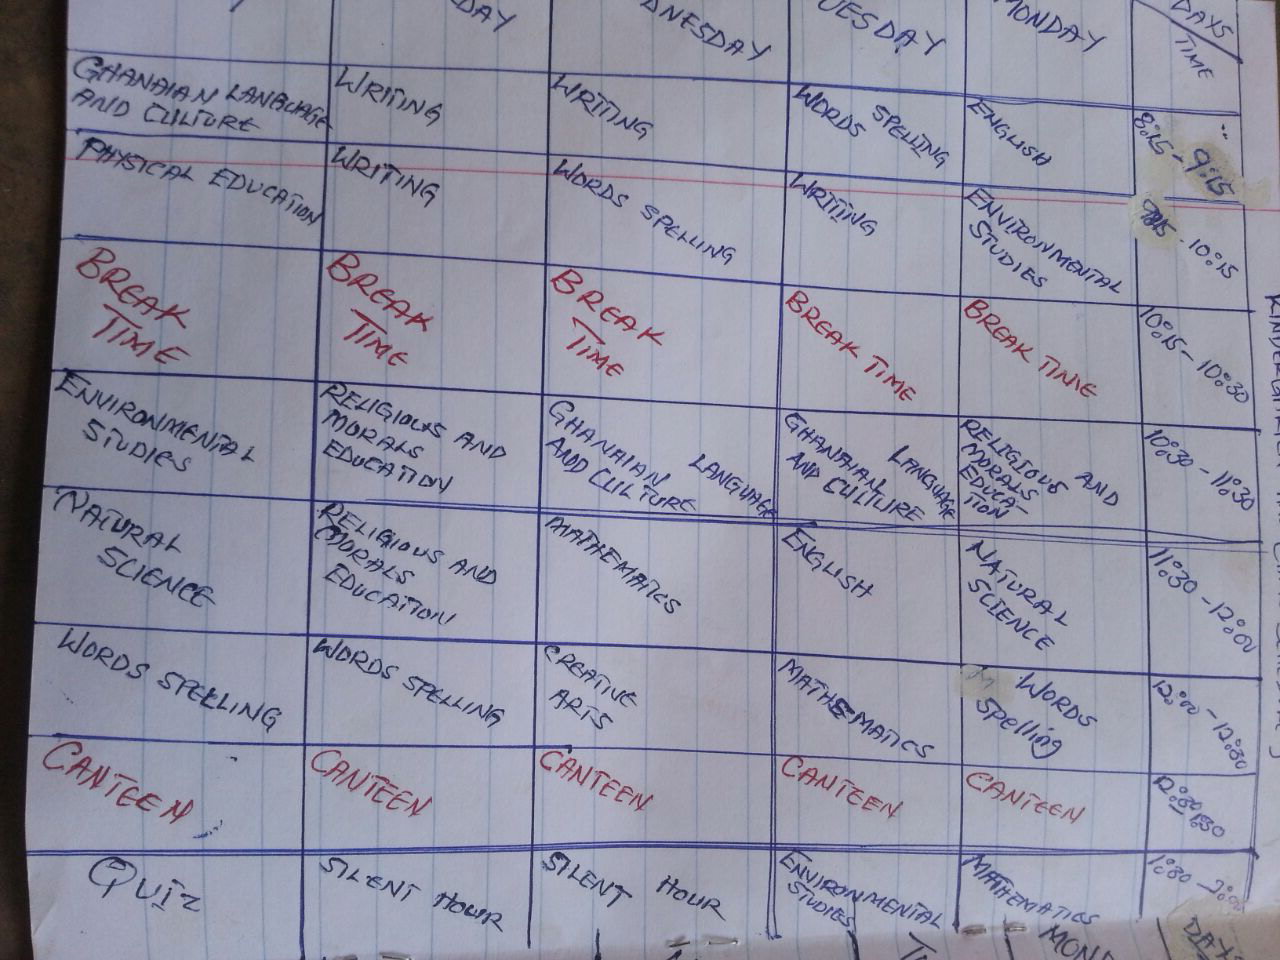 DAY
NESDAY
UESDAY
MONDAY
DAYS
TIME
GHANAIAN LANGUAGE
AND CULTURE
WRITING
WRITING
WORDS SPELLING
ENGLISH
8:15 - 9:15
PHYSICAL EDUCATION
WRITING
WORDS SPELLING
WRITING
ENVIRONMENTAL
STUDIES
- 10:15
BREAK
TIME
BREAK
TIME
BREAK
TIME
BREAK TIME
BREAK TIME
10:15 - 10:30
ENVIRONMENTAL
STUDIES
RELIGIOUS AND
MORALS
EDUCATION
GHANAIAN LANGUAGE
AND CULTURE
GHANAIAN LANGUAGE
AND CULTURE
RELIGIOUS AND
MORALS
EDUCA-
TION
10:30 - 11:30
NATURAL
SCIENCE
RELIGIOUS AND
MORALS
EDUCATION
MATHEMATICS
ENGLISH
NATURAL
SCIENCE
11:30 - 12:00
WORDS SPELLING
WORDS SPELLING
CREATIVE
ARTS
MATHEMATICS
WORDS
Spelling
12:00 - 12:30
CANTEEN
CANTEEN
CANTEEN
CANTEEN
CANTEEN
12:30 1:30
QUIZ
SILENT HOUR
SILENT HOUR
ENVIRONMENTAL
STUDIES
MATHEMATICS
1:30 - 2:00
MOND
DAYS